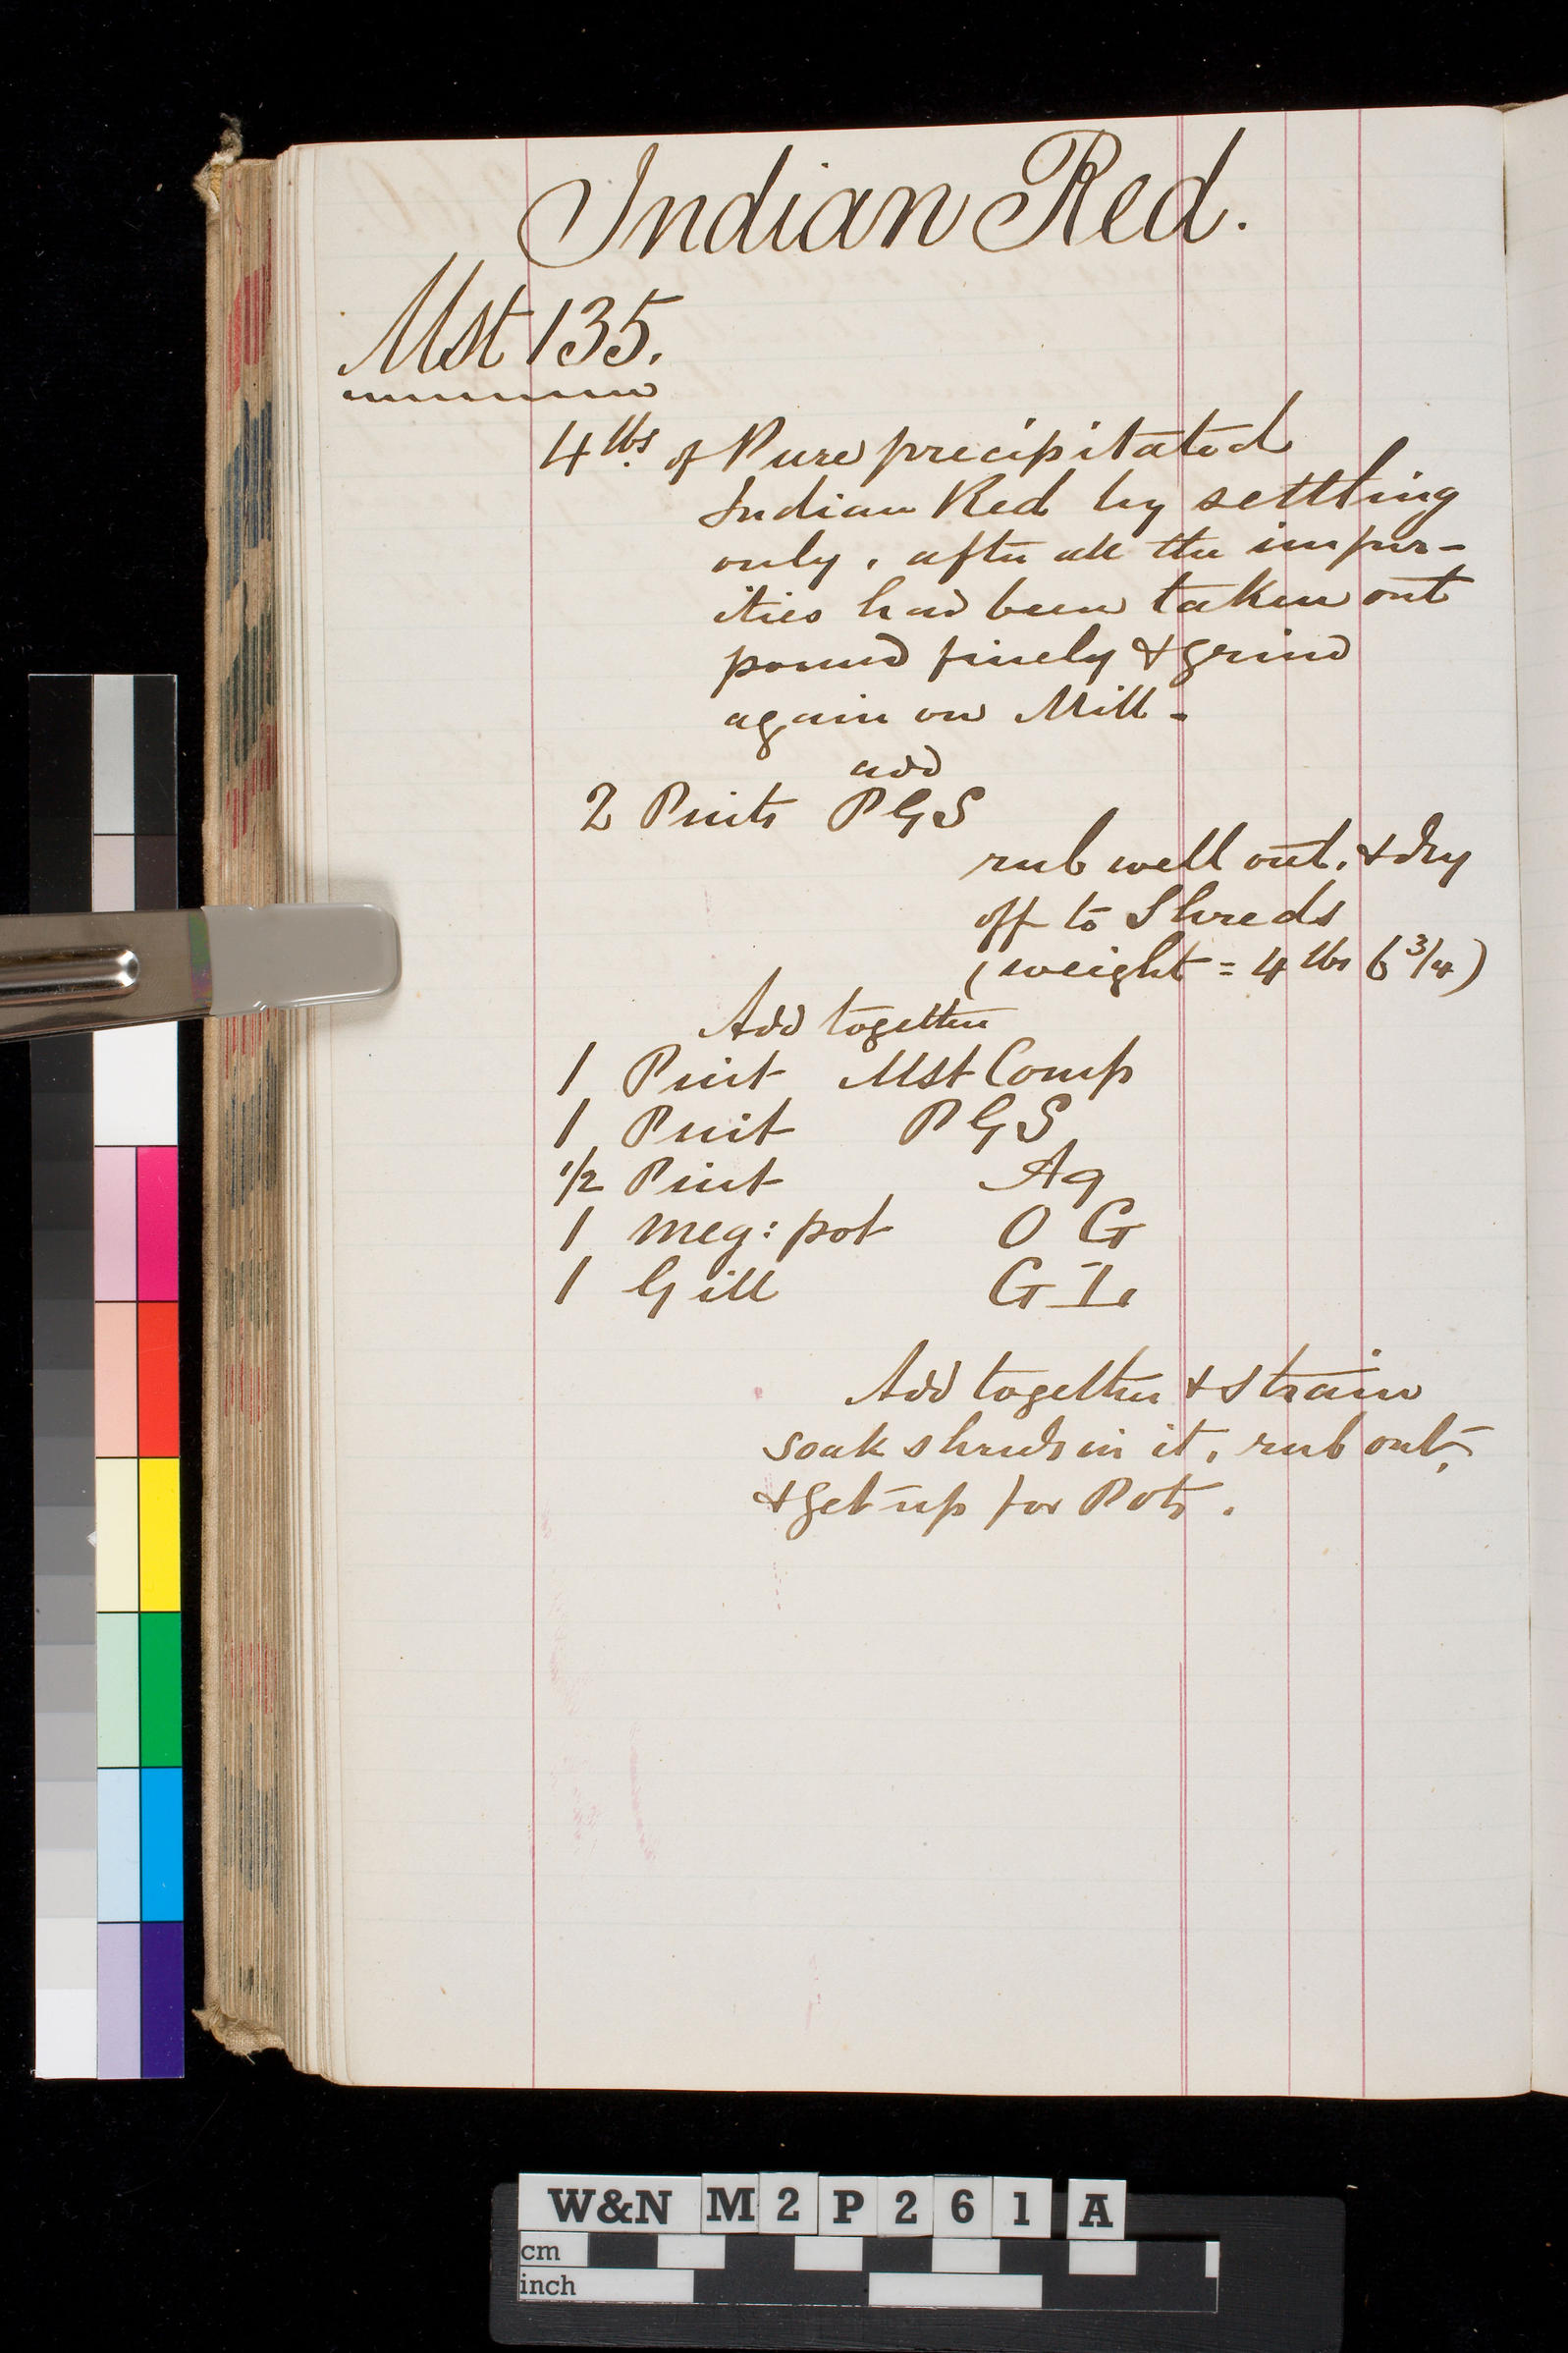 Indian Red.
Mst 135.
4 lbs. of Pure precipitated
Indian Red by settling
only, after all the impur-
ities had been taken out
pound finely & grind
again on Mill -
add
2 Pints PGS
rub well out, & dry
off to Shreds
(weight = 4 lbs 6 3/4)
Add together
1 Pint Mst Comp
1 Pint PGS
1/2 Pint Aq
1 meg: pot O G
1 Gill G I.
Add together & strain
soak shreds in it, rub out,
& get up for Pots.
W&N M2P261A
cm
inch